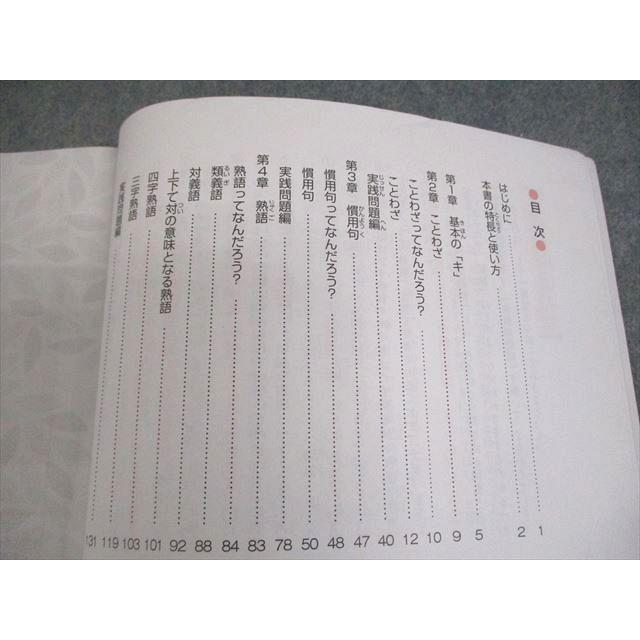 ●目次●
はじめに 1
本書の特長と使い方 2
第1章 基本の「キ」 5
第2章 ことわざ 9
ことわざってなんだろう? 10
ことわざ 12
実践問題編 40
第3章 慣用句 47
慣用句ってなんだろう? 48
慣用句 50
実践問題編 78
第4章 熟語 83
熟語ってなんだろう? 84
類義語 88
対義語 92
上下で対の意味となる熟語 101
四字熟語 103
三字熟語 119
実践問題編 131